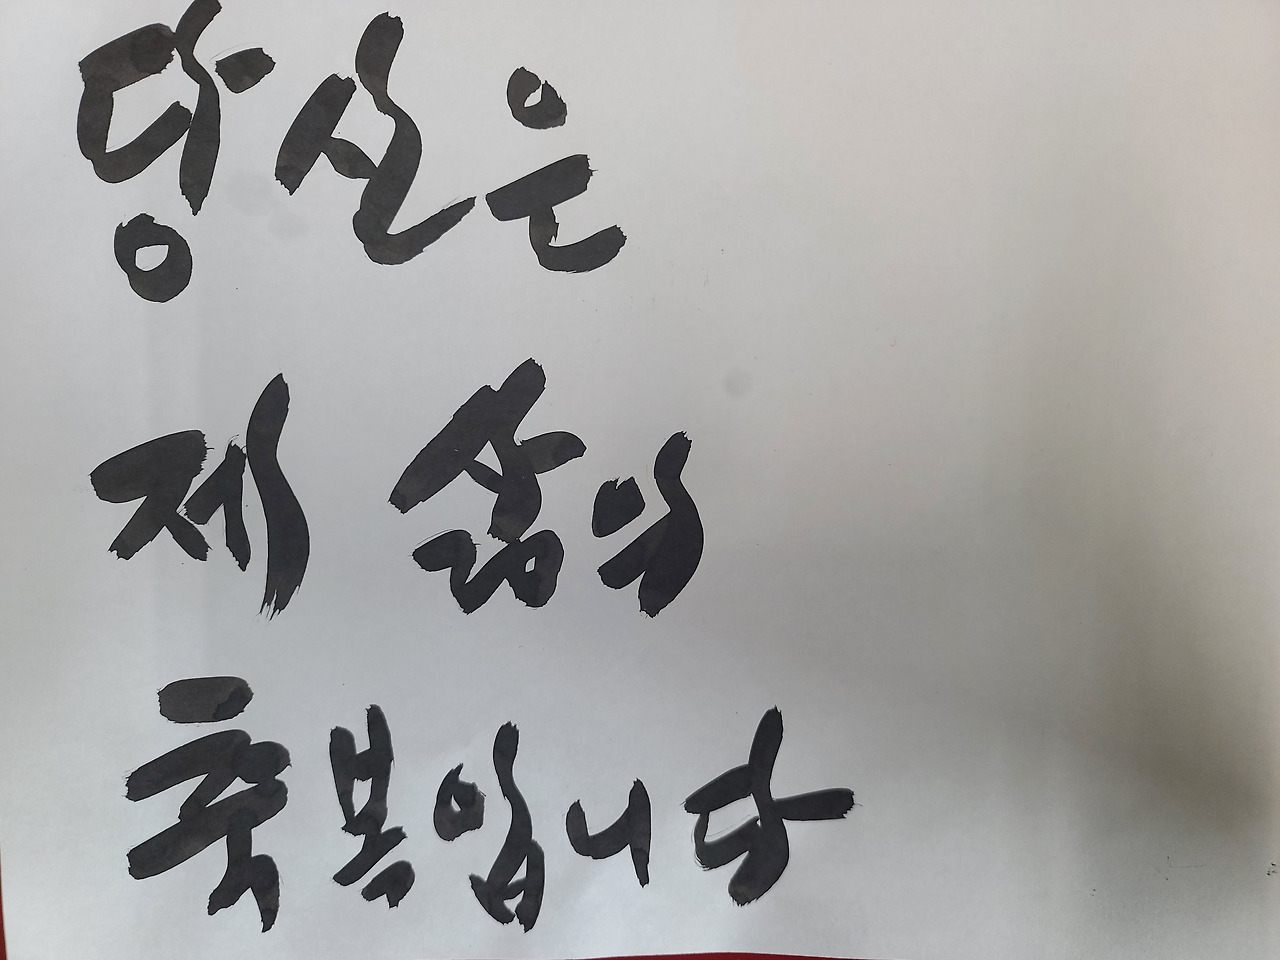 당신은
제 삶의
축복입니다